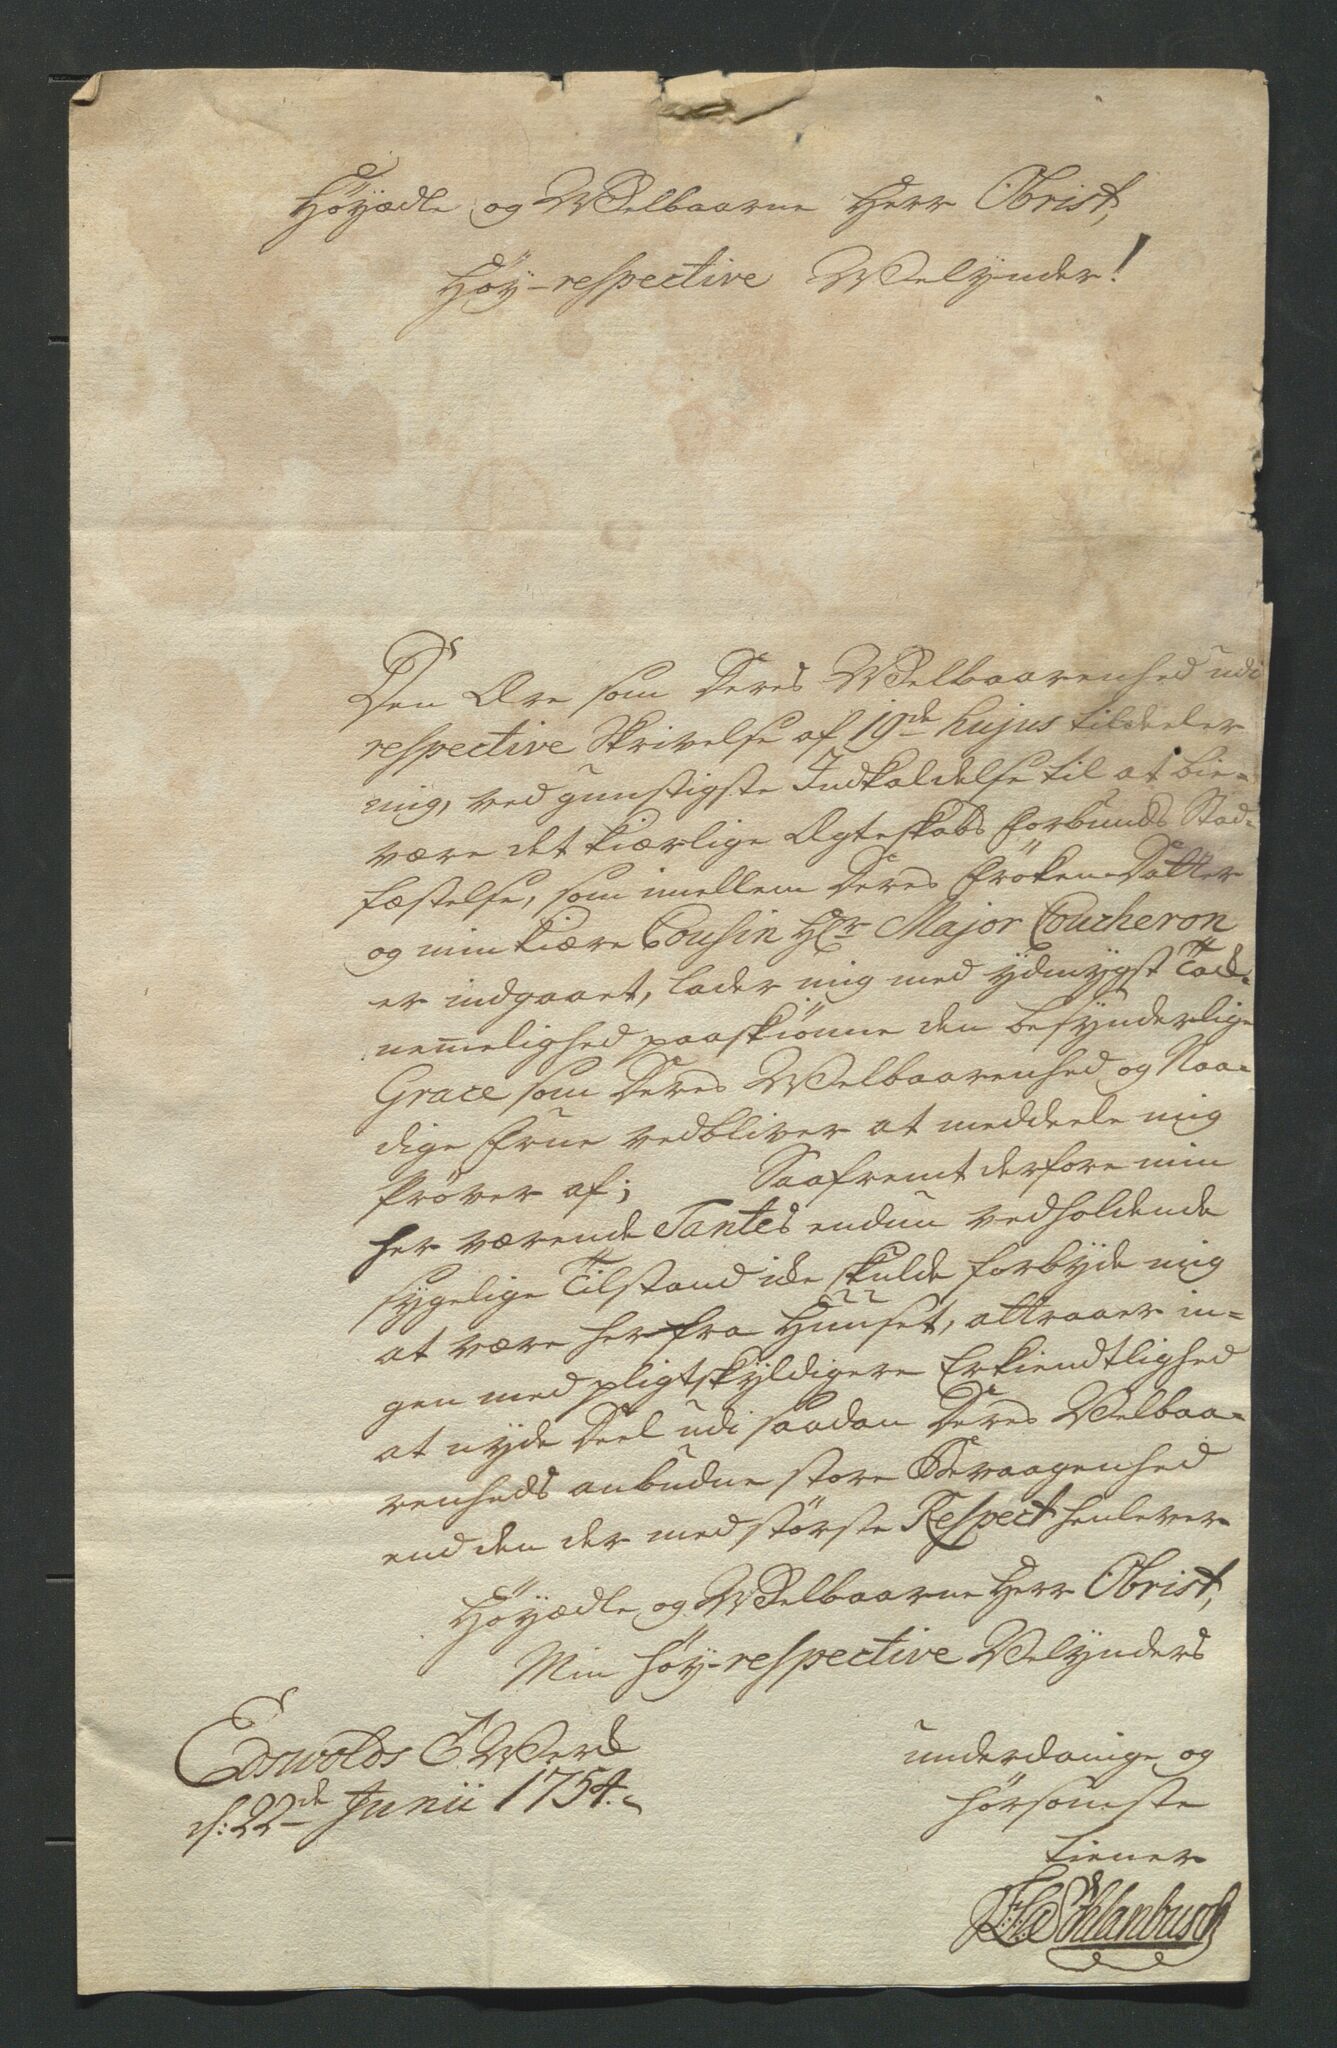 Høyædle og Welbaarne Herr Obrist,
Høy-respective Welynder!
Den Ære som Deres Welbaarenhed udi
respective Skrivelse af 19de hujus tildeeler
mig, ved gunstigste Indkaldelse til at bie-
være det kiærlige Ægteskabs Forbunds Stad-
fæstelse, som imellem Deres Frøken Datter
og min kiære Cousin Hr Major Coucheron
er indgaaet, lader mig med ydmygst Tack-
nemmelighed paaskiønne den besynderlige
Grace som Deres Welbaarenhed og Naa-
dige Frue vedbliver at meddeele mig
Prøver af; Saafremt derfore min
her værende Tantes endnu vedholdende
sygelige Tilstand icke skulde forbyde mig
at være her fra Huuset, attraaer in-
gen med pligtskyldigere Erkiendtlighed
at nyde Deel udi saadan Deres Velbaa-
renheds anbudne store Bevaagenhed
end den der med største Respect henlever
Høyædle og Welbaarne Herr Obrist,
Min høy-respective Velynders
underdanige og
hørsomste
tiener
Edswolds Werck
d: 22de Junii 1754.
Schlanbusch